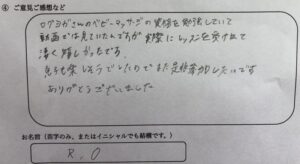 ④ ご意見ご感想など
ロイヨガさんのベビーマッサージの資格を勉強していて
動画では見ていたんですが実際にレッスンを受けれて
凄く嬉しかったです
息子も楽しそうでしたのでまた是非参加したいです
ありがとうございました
お名前(苗字のみ、またはイニシャルでも結構です。)
R.O